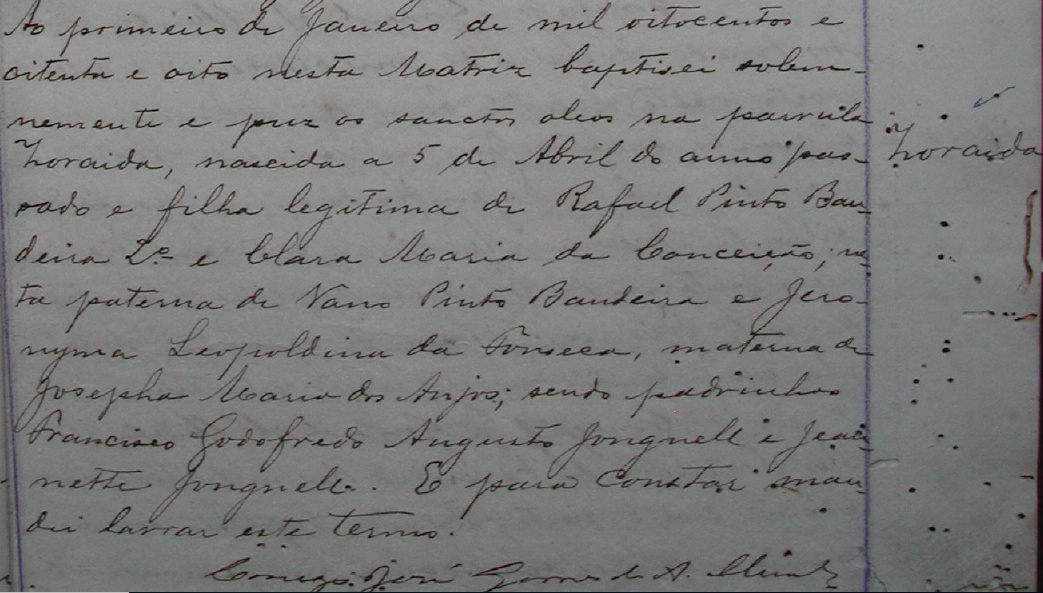 Ao primeiro de Janeiro de mil oitocentos e
oitenta e oito nesta Matriz baptisei solem-
nemente e puz os sanctos oleos na parvula
Zoraida
Zoraida, nascida a 5 de Abril do anno pas-
sado e filha legitima de Rafael Pinto Ban-
deira 2º e Clara Maria da Conceição; ne-
ta paterna de Vano Pinto Bandeira e Jero-
nyma Leopoldina da Fonseca, materna de
Josepha Maria dos Anjos; sendo padrinhos
Francisco Godofredo Augusto Jongnell e Jean-
nette Jongnell. E para constar man-
dei lavrar este termo.
Conego José Gomes de A.